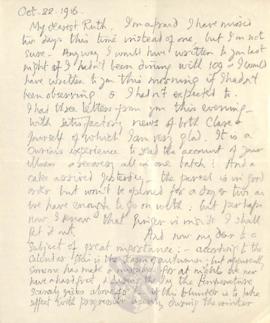 Oct. 22. 1916.
My dearest Ruth. I'm afraid I have missed
two days this time instead of one, but I'm not
sure. Anyway I would have written to you last
night if I hadn't been dining with 109 & I would
have written to you this morning if I hadn't
been observing & I hadn't expected to.
I had three letters from you this evening
with satisfactory news of both Clare &
yourself of which I am very glad. It is a
curious experience to read the account of your
illness & recovery all in one batch! And a
cake arrived yesterday, the parcel is in good
order but won't be opened for a day or two as
we have enough to go on with; but perhaps
now I hear that ginger is inside I shall
let it out.
And now my dear to a
subject of great importance:- according to the
Calendar this is the autumn, but apparently
someone has made a for at nights we now
have a hard frost & the temperature
rarely gets above If this blunder is to take
effect with progressive during the winter